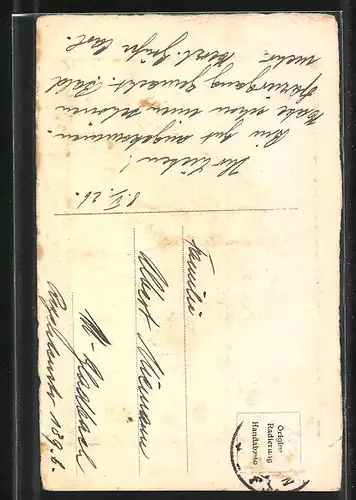 8. V. 26.
Ihr Lieben!
Bin gut angekommen.
Habe schon einen schönen
Spaziergang gemacht. Bald
mehr. Herzl. Grüße
Familie
Albert Niemann
M.-Gladbach
189
Original
Radierung
Handabzug